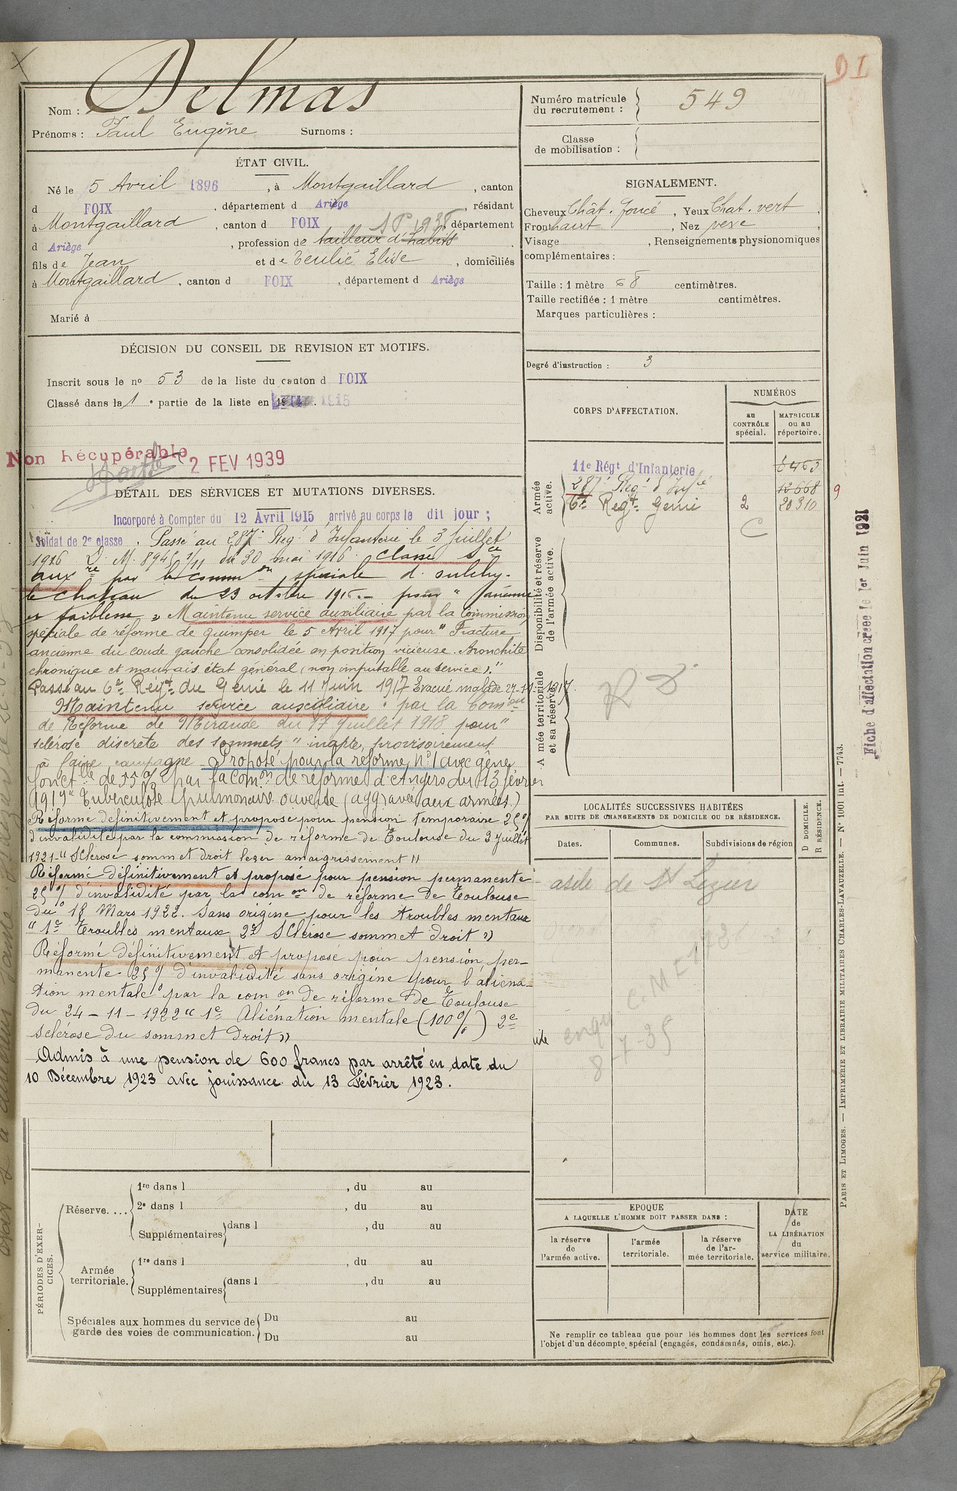 Delmas
Nom :
Prénoms : Paul Eugène Surnoms :
ÉTAT CIVIL.
Né le 5 Avril 1896, à Montgaillard, canton
d FOIX, département d Ariège, résidant
à Montgaillard, canton d FOIX, département
d Ariège, profession de tailleur d'habits
fils de Jean et de Teulié Elise, domiciliés
à Montgaillard, canton d FOIX, département d Ariège
Marié à
DÉCISION DU CONSEIL DE REVISION ET MOTIFS.
Inscrit sous le no 53 de la liste du canton d FOIX
Classé dans la 1e partie de la liste en 1915
Non Récupérable
2 FEV 1939
DÉTAIL DES SERVICES ET MUTATIONS DIVERSES.
Incorporé à Compter du 12 Avril 1915 arrivé au corps le dit jour ;
Soldat de 2e classe. Passe au 287e Reg d'Infanterie le 3 juillet
1916 D. M. du 30 mai 1916. Classé Sce
auxre par la common spéciale d
le chateau du 23 octobre 1916.- pour "
et faiblesse » Maintenu service auxiliaire par la Commission
spéciale de réforme de Quimper le 5 Avril 1917 pour " Fracture
ancienne du coude gauche consolidée en position vicieuse. Bronchite
chronique et mauvais état général (non imputable au service)."
Passé au 6e Régt du Génie le 11 Juin 1917 Evacué malade
Maintenu service auxiliaire par la Comon
de Réforme de Mirande du 17 Juillet 1918 pour "
sclérose discrète des sommets" inapte provisoirement
à faire campagne - Proposé pour la réforme n°1 avec gêne
fonctle de 55% par la Comon de réforme d'Angers du 13 février
1919 "Tuberculose pulmonaire ouverte (aggravée aux armées.)
Réformé définitivement et proposé pour pension temporaire 25%
d'invalidité par la commission de réforme de Toulouse du 3 Juillet
1921 "Sclérose sommet droit léger amaigrissement"
Réformé définitivement et proposé pour pension permanente
25% d'invalidité par la comon de réforme de Toulouse
du 18 Mars 1922. Sans origine pour les troubles mentaux
"1° Troubles mentaux 2° Sclérose sommet droit"
Réformé définitivement et proposé pour pension per-
manente 25% d'invalidité sans origine pour l'aliéna-
tion mentale par la comon de réforme de Toulouse
du 24-11-1922 "1e Aliénation mentale (100%) 2e
sclérose du sommet droit"
Admis à une pension de 600 francs par arrêté en date du
10 Décembre 1923 avec jouissance du 13 Février 1923.
PÉRIODES D'EXERCICES.
Réserve....
1re dans l , du au
2e dans l , du au
Supplémentaires dans l , du au
Armée territoriale.
1re dans l , du au
Supplémentaires dans l , du au
Spéciales aux hommes du service de
garde des voies de communication.
Du au
Du au
Numéro matricule
du recrutement : 549
Classe
de mobilisation :
SIGNALEMENT.
Cheveux Chât. foncé, Yeux Chat. vert
Front haut, Nez vexe
Visage , Renseignements physionomiques
complémentaires :
Taille : 1 mètre 68 centimètres.
Taille rectifiée : 1 mètre centimètres.
Marques particulières :
Degré d'instruction : 3
CORPS D'AFFECTATION.
NUMÉROS
AU CONTRÔLE spécial.
MATRICULE ou au répertoire.
Armée active.
11e Régt d'Infanterie
287e Reg d'Infie 12668
6e Regt Genie 2 20310
C
Disponibilité et réserve
de l'armée active.
Armée territoriale
et sa réserve.
LOCALITÉS SUCCESSIVES HABITÉES
PAR SUITE DE CHANGEMENTS DE DOMICILE OU DE RÉSIDENCE.
D DOMICILE.
R RÉSIDENCE.
Dates. Communes. Subdivisions de région
asile de St Lizier
8-7-35
EPOQUE
A LAQUELLE L'HOMME DOIT PASSER DANS :
la réserve de l'armée active.
l'armée territoriale.
la réserve de l'armée territoriale.
DATE
de
LA LIBÉRATION
du
service militaire.
Ne remplir ce tableau que pour les hommes dont les services font
l'objet d'un décompte spécial (engagés, condamnés, omis, etc.).
Fiche d'affectation créée le 1er Juin 1921
PARIS ET LIMOGES. — IMPRIMERIE ET LIBRAIRIE MILITAIRES CHARLES-LAVAUZELLE. — N° 1001 int. — 7743.